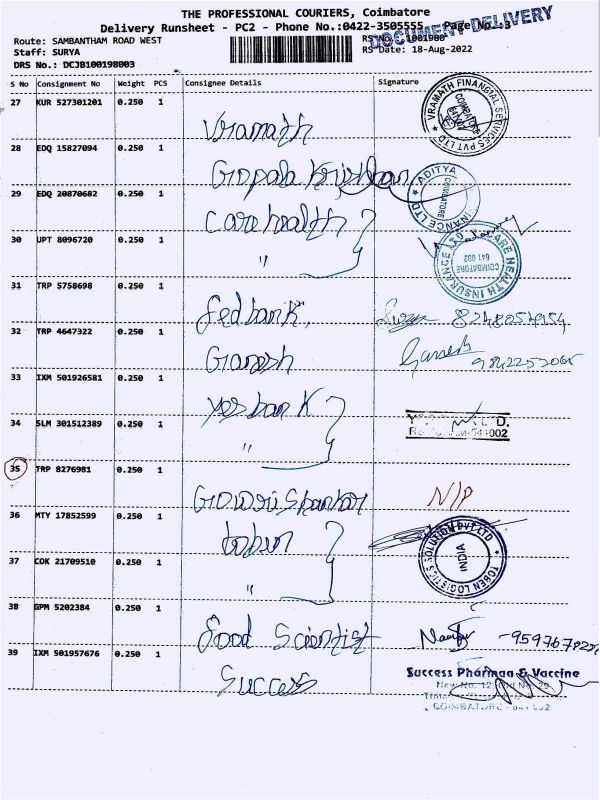 THE PROFESSIONAL COURIERS, Coimbatore
Delivery Runsheet - PC2 - Phone No.:0422-3505555 Page No.:3
DOCUMENT DELIVERY
Route: SAMBANTHAM ROAD WEST
Staff: SURYA
RS Date: 18-Aug-2022
DRS No.: DCJB100198003
S No Consignment No Weight PCS Consignee Details Signature
27 KUR 527301201 0.250 1
Vramath
VRAMATH FINANCIAL SERVICES PVT LTD
COIMBATORE
28 EDQ 15827094 0.250 1
Gopala Krishnan
ADITYA
COIMBATORE
29 EDQ 20870682 0.250 1
Care health
30 UPT 8096720 0.250 1
"
CARE HEALTH INSURANCE LTD
COIMBATORE
641 002
31 TRP 5758698 0.250 1
Fedbank
32 TRP 4647322 0.250 1
Ganesh
Ganesh
33 IXM 501926581 0.250 1
Yes bank
34 SLM 301512389 0.250 1
"
35 TRP 8276981 0.250 1
Gowri Shankar N/P
36 MTY 17852599 0.250 1
toben
TOBEN LOGISTICS SOLUTION PVT LTD
INDIA
37 COK 21709510 0.250 1
"
38 GPM 5202384 0.250 1
Food Scientist
39 IXM 501957676 0.250 1
Success
Success Pharmaa & Vaccine
COIMBATORE - 641 002